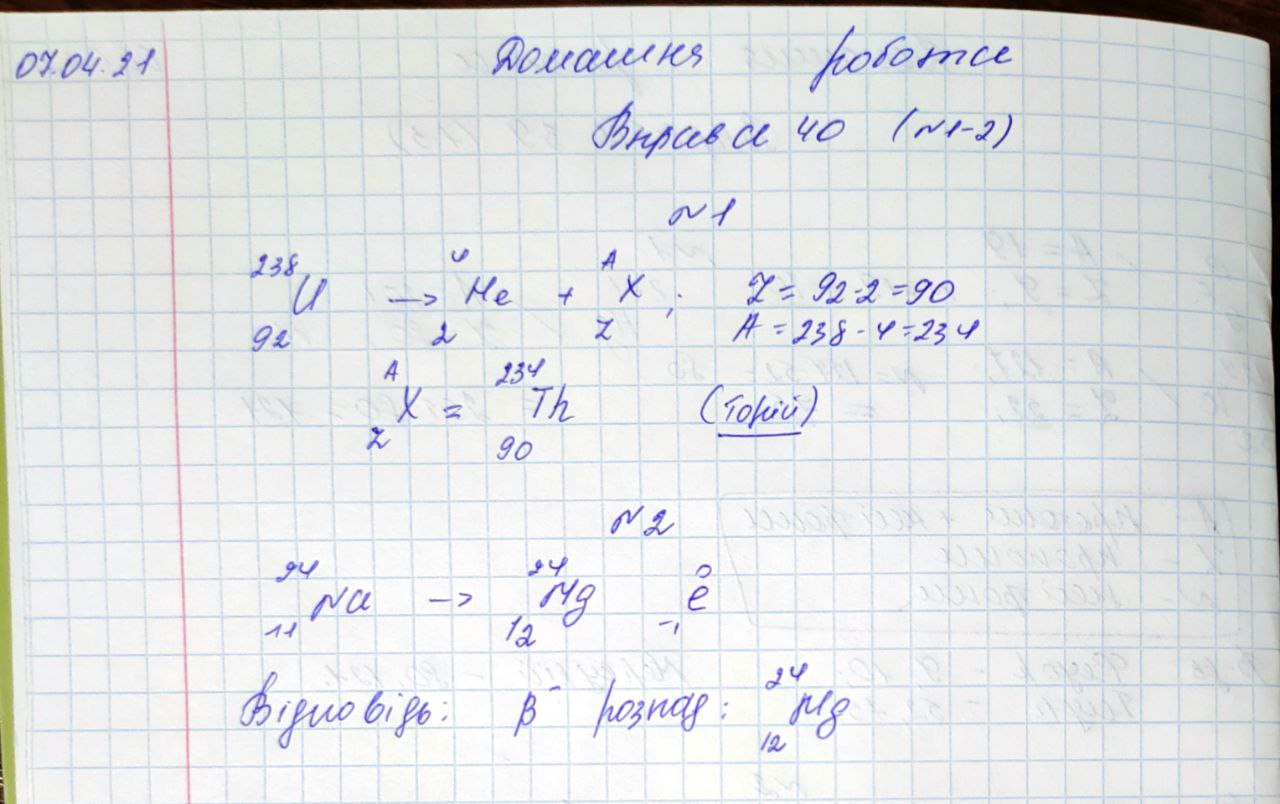 07.04.21
Домашня робота
Вправа 40 (№1-2)
№1
²³⁸₉₂U → ⁴₂He + ᴬ_Z X; Z = 92-2=90
A = 238-4=234
ᴬ_Z X = ²³⁴₉₀Th (Торій)
№2
²⁴₁₁Na → ²⁴₁₂Mg ⁰₋₁e
Відповідь: β⁻ розпад: ²⁴₁₂Mg